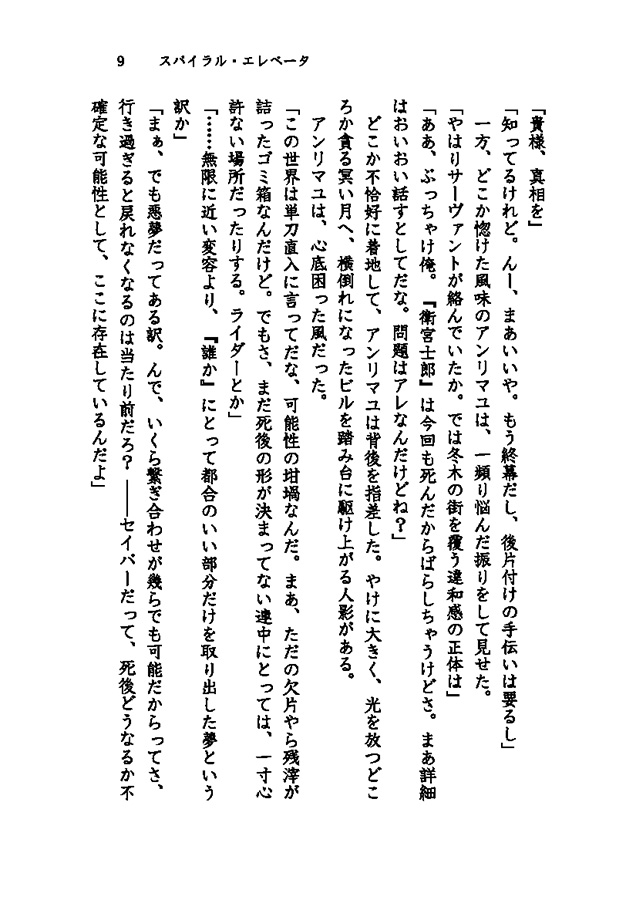 9　スパイラル・エレベータ
「貴様、真相を」
「知ってるけれど。んー、まあいいや。もう終幕だし、後片付けの手伝いは要るし」
　一方、どこか惚けた風味のアンリマユは、一頻り悩んだ振りをして見せた。
「やはりサーヴァントが絡んでいたか。では冬木の街を覆う違和感の正体は」
「ああ、ぶっちゃけ俺。『衛宮士郎』は今回も死んだからばらしちゃうけどさ。まあ詳細
はおいおい話すとしてだな。問題はアレなんだけどね？」
　どこか不恰好に着地して、アンリマユは背後を指差した。やけに大きく、光を放つどこ
ろか貪る冥い月へ、横倒れになったビルを踏み台に駆け上がる人影がある。
　アンリマユは、心底困った風だった。
「この世界は単刀直入に言ってだな、可能性の坩堝なんだ。まあ、ただの欠片やら残滓が
詰ったゴミ箱なんだけど。でもさ、まだ死後の形が決まってない連中にとっては、一寸心
許ない場所だったりする。ライダーとか」
「……無限に近い変容より、『誰か』にとって都合のいい部分だけを取り出した夢という
訳か」
「まぁ、でも悪夢だってある訳。んで、いくら繋ぎ合わせが幾らでも可能だからってさ、
行き過ぎると戻れなくなるのは当たり前だろ？　――セイバーだって、死後どうなるか不
確定な可能性として、ここに存在しているんだよ」